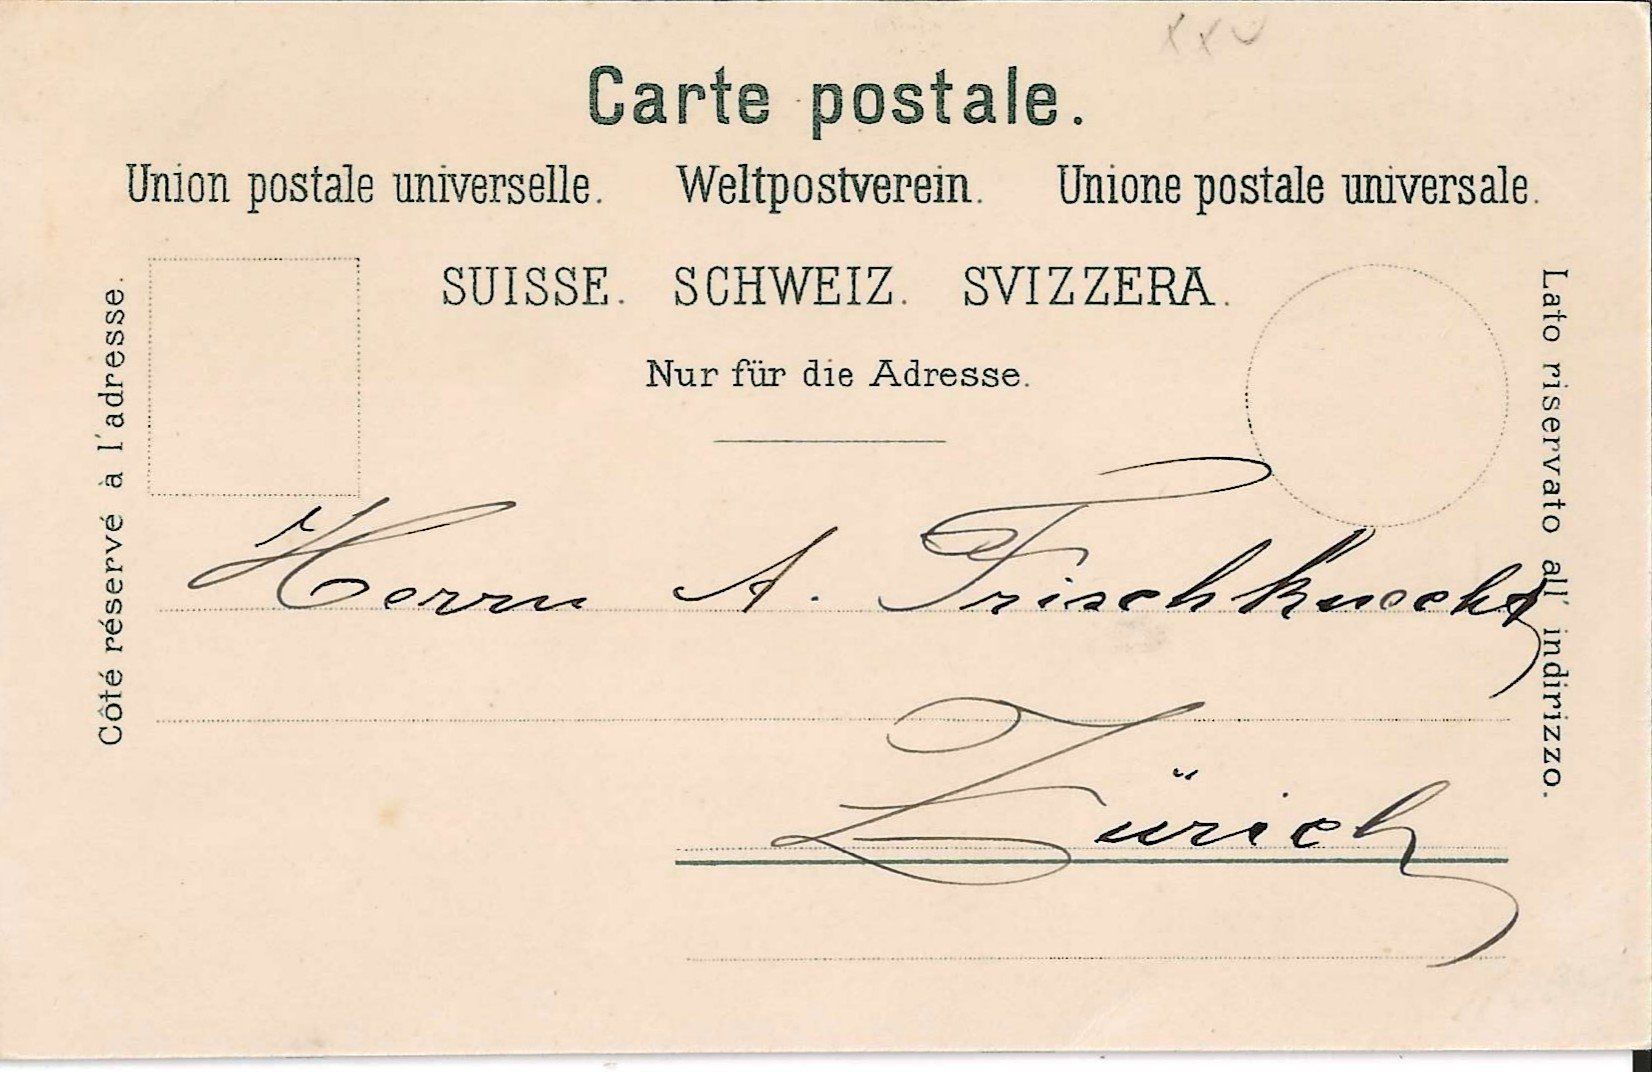 Carte postale.
Union postale universelle. Weltpostverein. Unione postale universale.
SUISSE. SCHWEIZ. SVIZZERA.
Nur für die Adresse.
Côté réservé à l'adresse.
Lato riservato all' indirizzo.
Herrn A. Frischknecht
Zürich